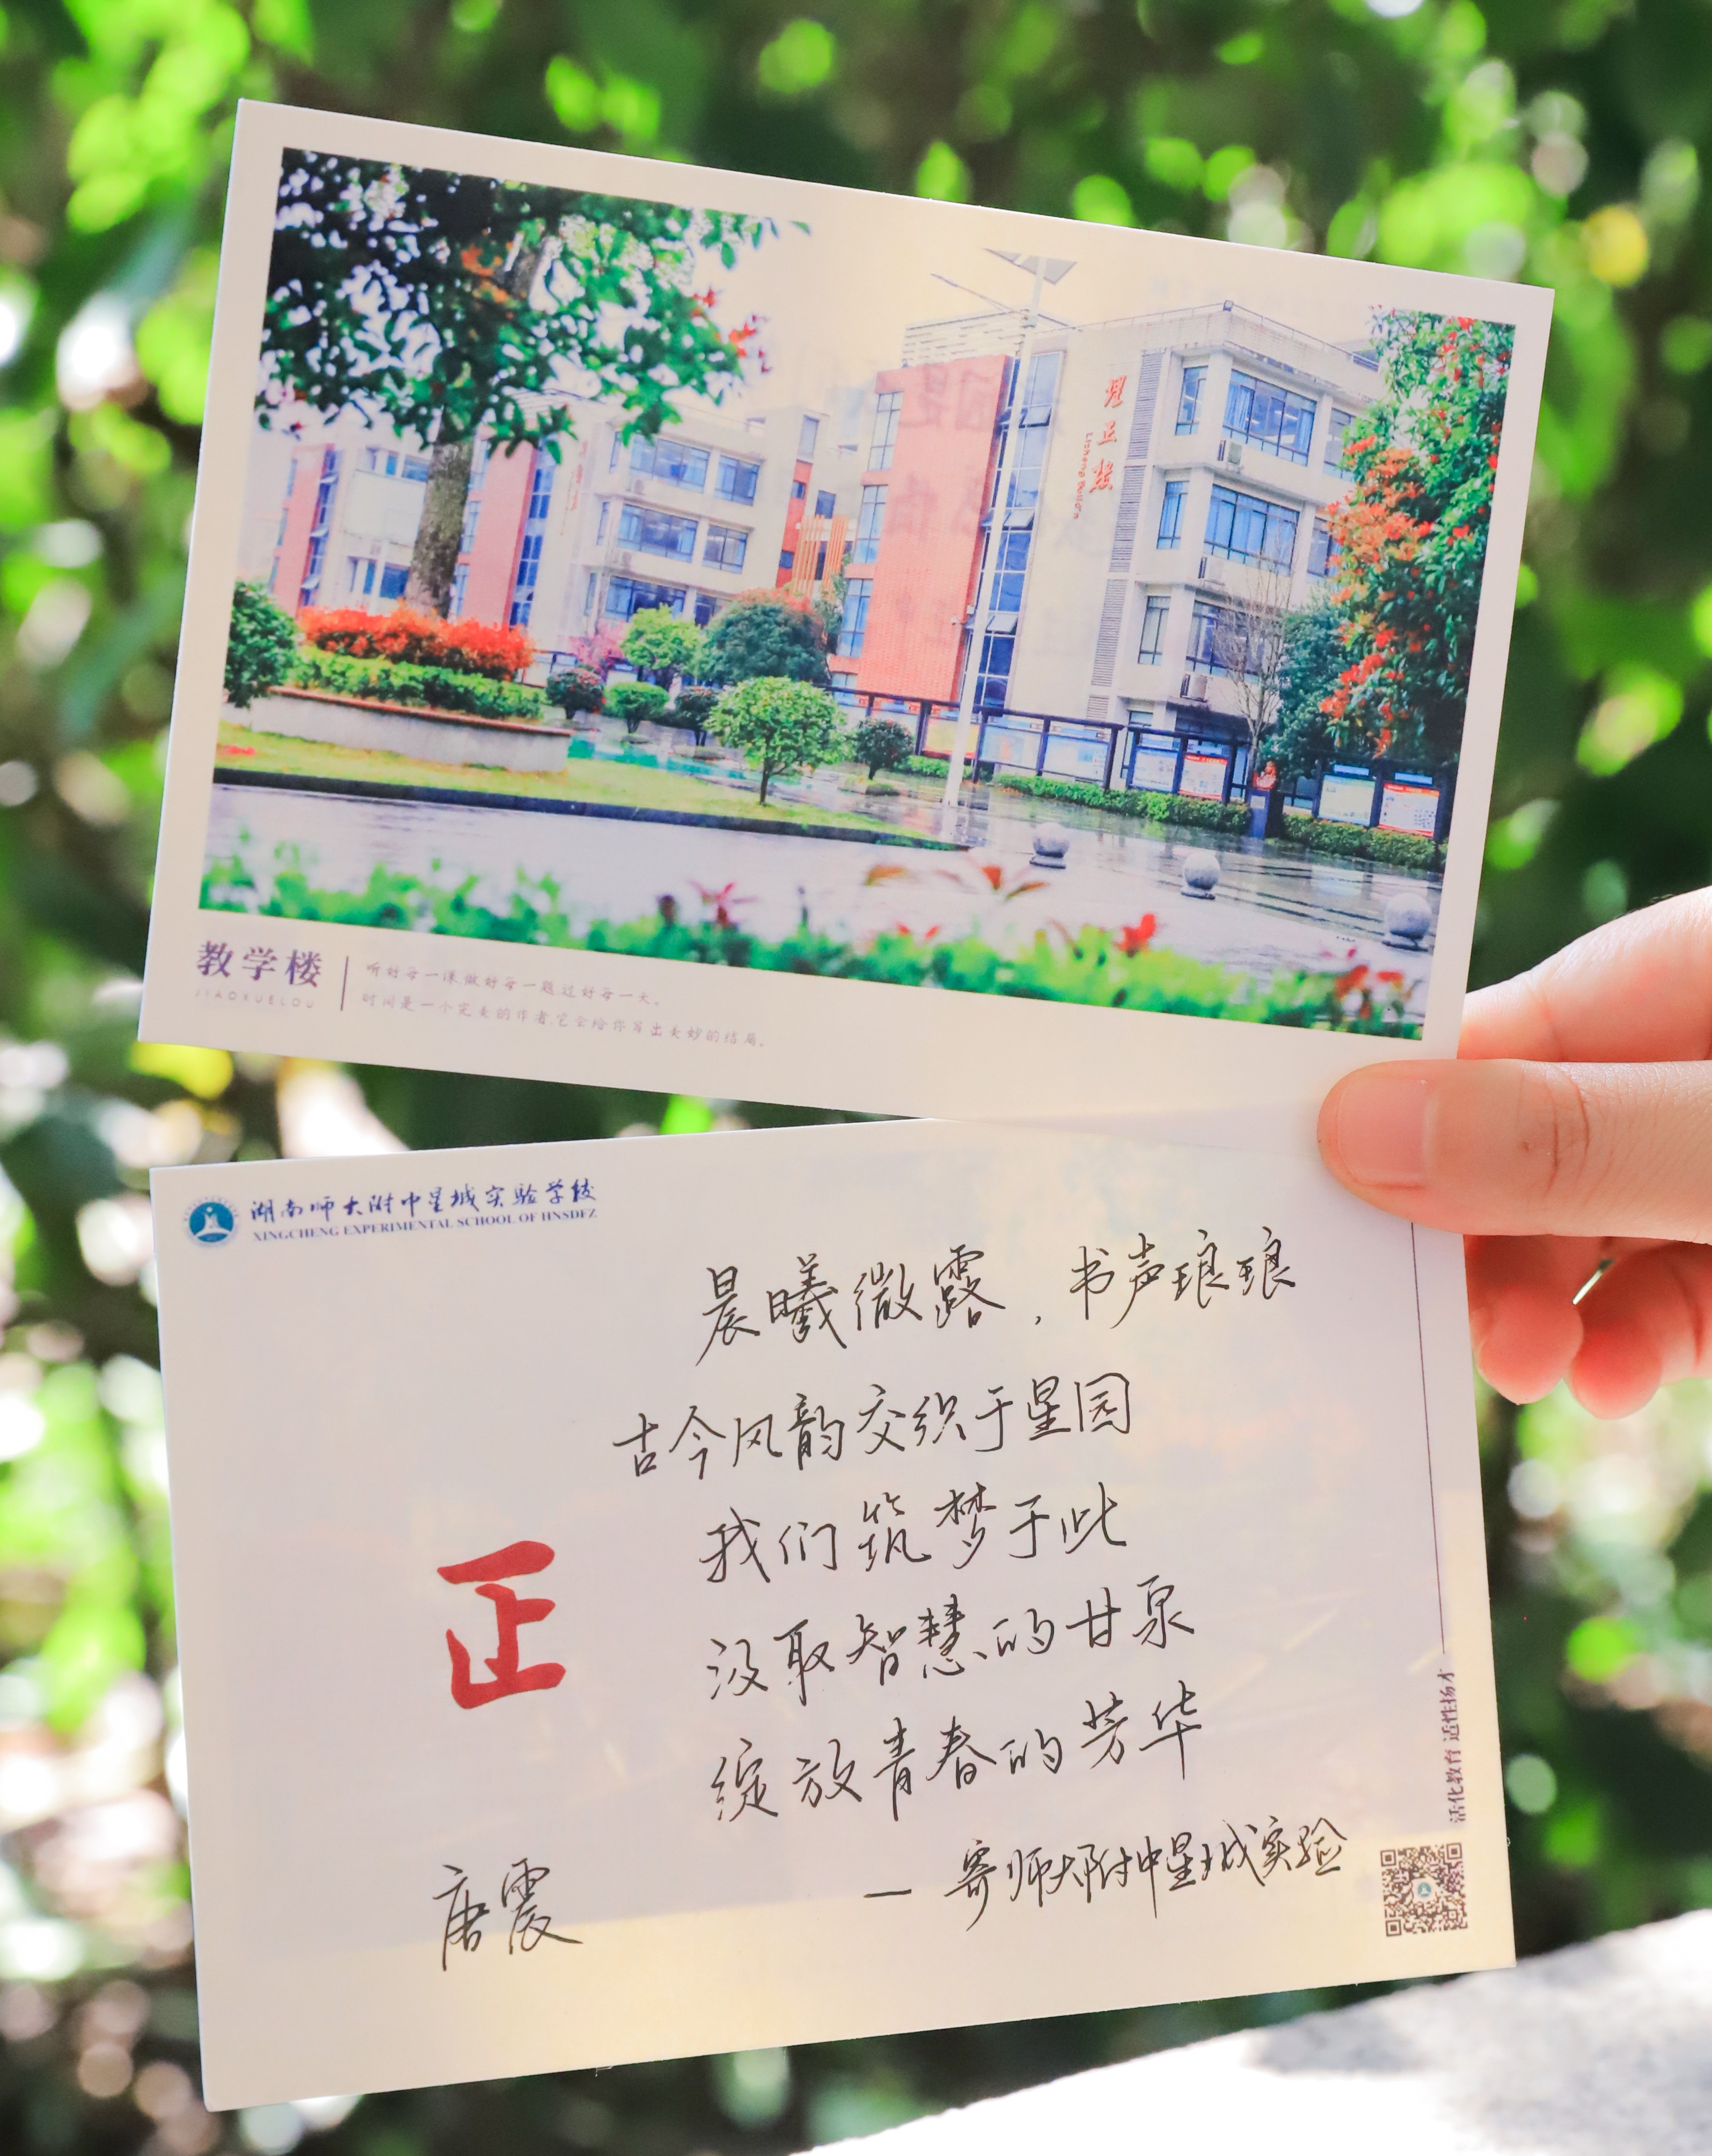 理正楼
Lizheng Building
教学楼
JIAOXUELOU
听好每一课做好每一题过好每一天。
时间是一个完美的作者,它会给你写出美妙的结局。
湖南师大附中星城实验学校
XINGCHENG EXPERIMENTAL SCHOOL OF HNSDFZ
晨曦微露，书声琅琅
古今风韵交织于星园
我们筑梦于此
汲取智慧的甘泉
绽放青春的芳华
— 寄师大附中星城实验
正
唐震
活化教育 适性扬才